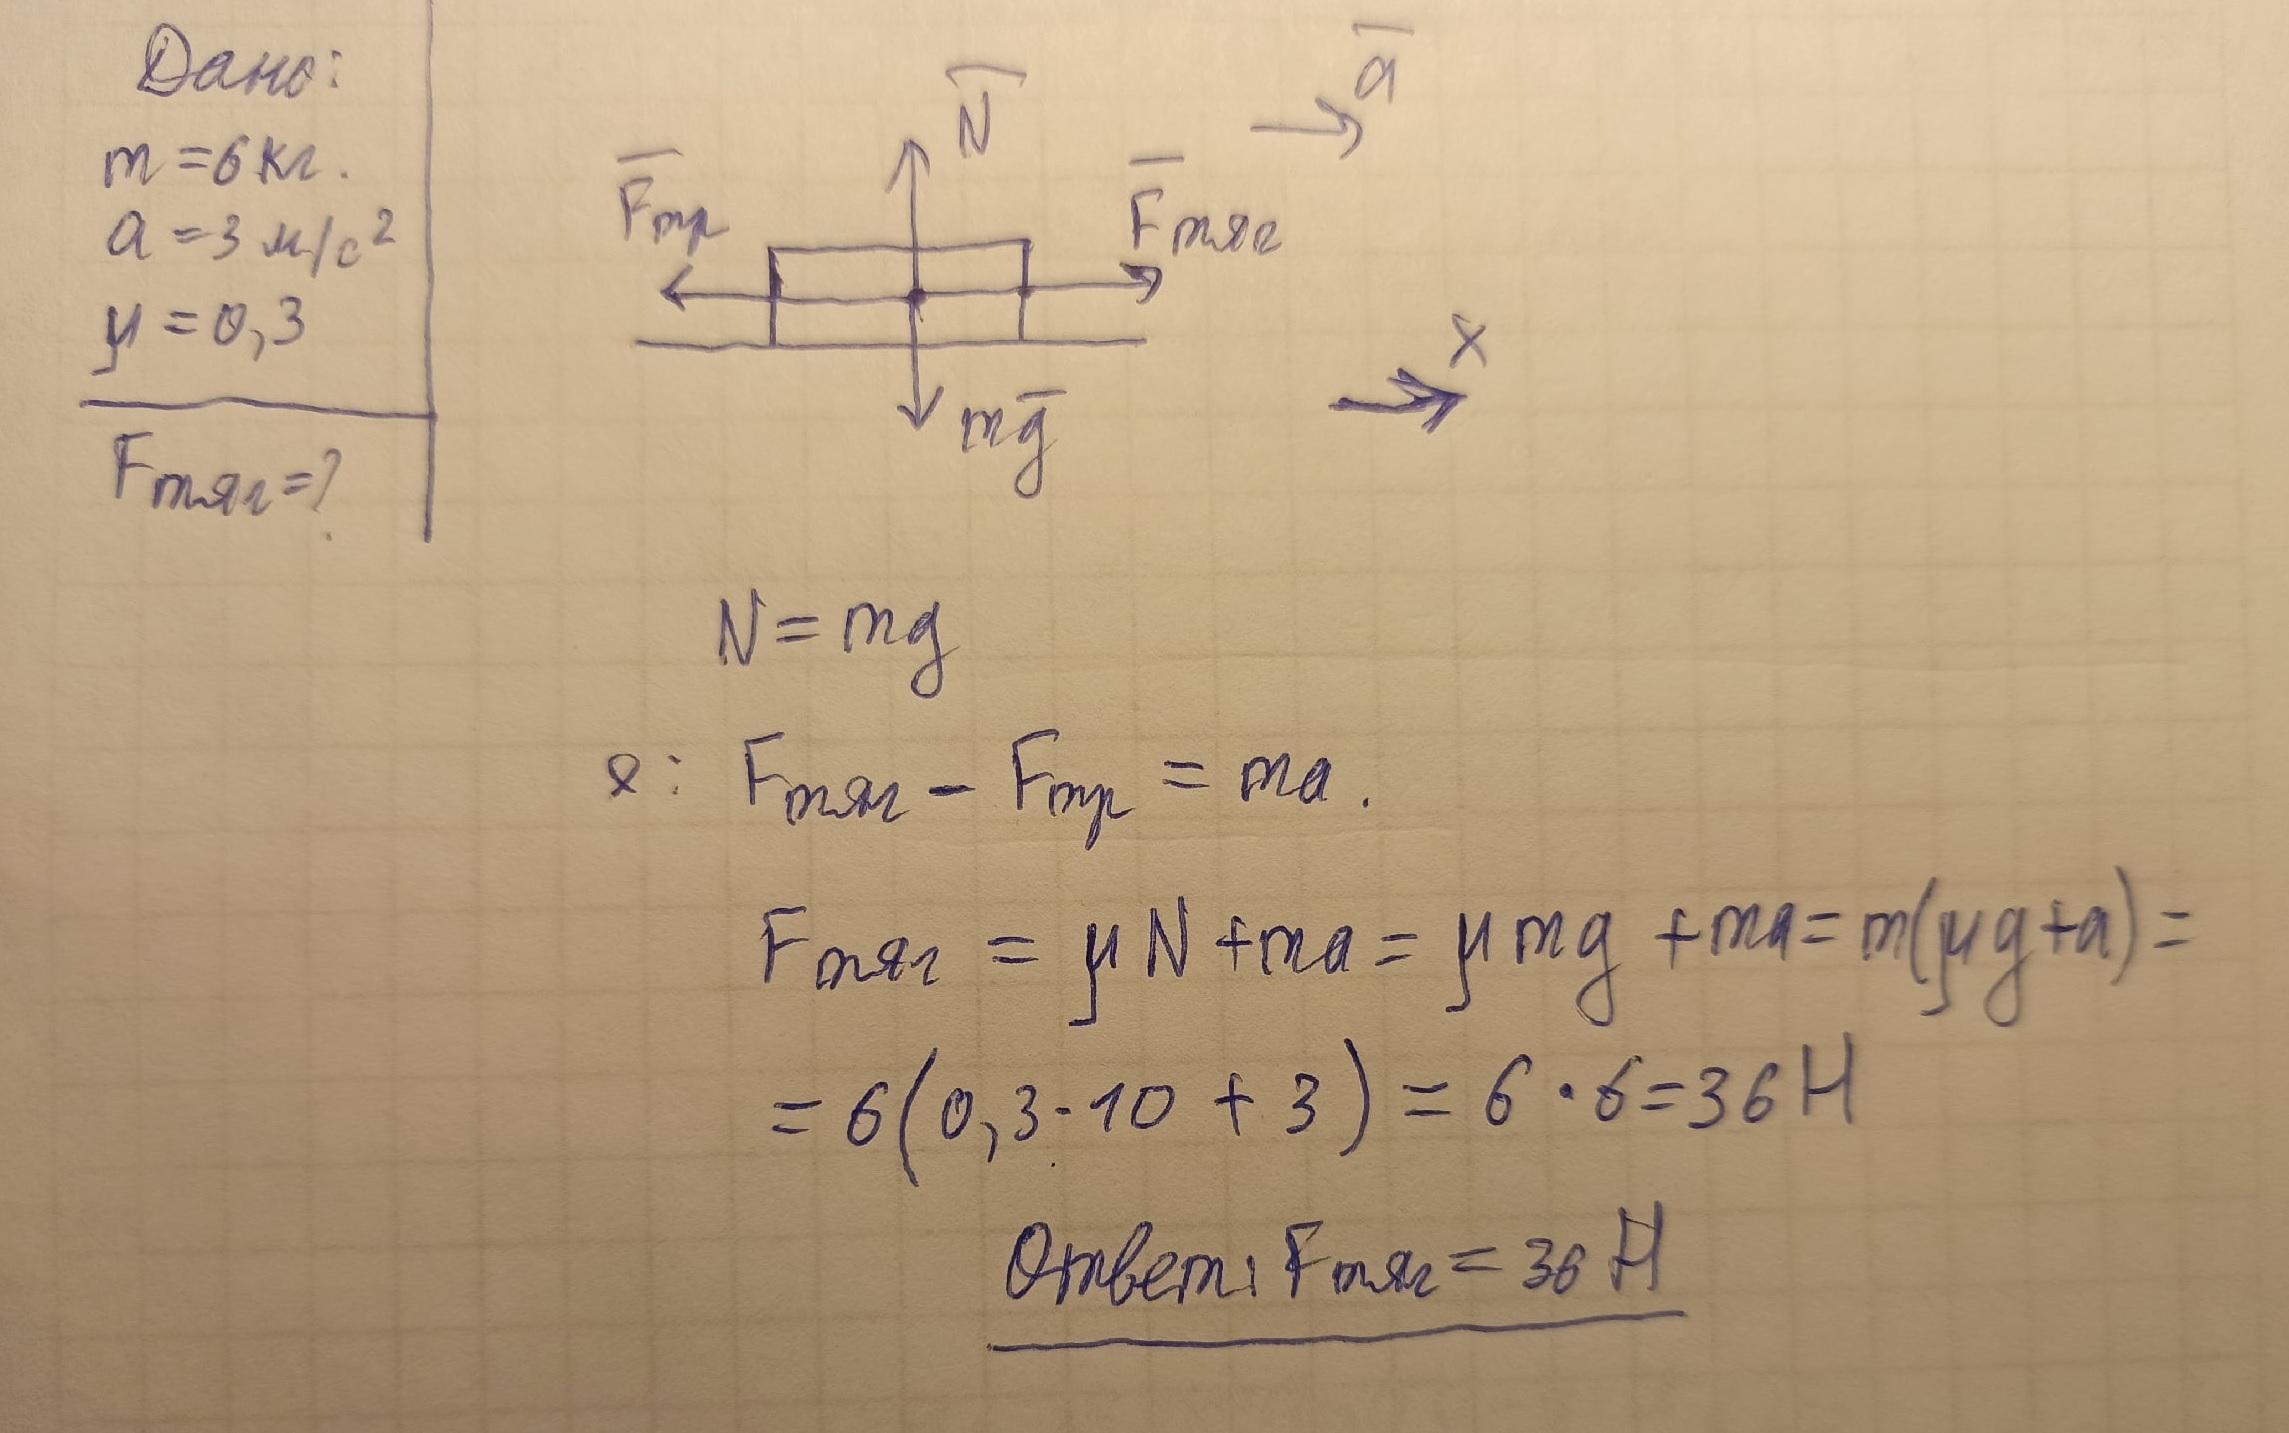 Дано:
m = 6 кг.
a = 3 м/с²
μ = 0,3
Fтяг = ?
N̅
a̅
F̅тр
F̅тяг
x
mg̅
N = mg
x: Fтяг - Fтр = ma.
Fтяг = μN + ma = μmg + ma = m(μg + a) =
= 6(0,3·10 + 3) = 6·6 = 36 Н
Ответ: Fтяг = 36 Н